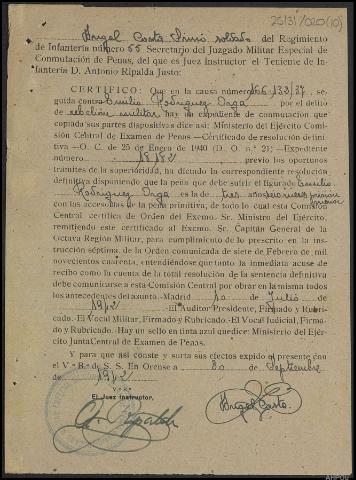 25131/020(10)
Angel Costa Simó soldado del Regimiento
de Infantería número 55 Secretario del Juzgado Militar Especial de
Conmutación de Penas, del que es Juez Instructor el Teniente de In-
fantería D. Antonio Ripalda Justo:
CERTIFICO: Que en la causa número 166-133/37, se-
guida contra Emilio Rodriguez Onga por el delito
de rebelión militar, hay un expediente de conmutación que
copiada sus partes dispositivas dice así: Ministerio del Ejército Comi-
sión Central de Examen de Penas—Certificado de resolución defin-
itiva—O. C. de 25 de Enero de 1940 (D. O. n.º 21)—Expediente
número 18182 previo los oportunos
trámites de la superioridad, ha dictado la correspondiente resolución
definitiva disponiendo que la pena que debe sufrir el figurado Emilio
Rodriguez Onga es la de tres años prisión menor
con las accesorias de la pena primitiva, de todo lo cual esta Comisión
Central certifica de Orden del Excmo. Sr. Ministro del Ejército,
remitiendo este certificado al Excmo. Sr. Capitán General de la
Octava Región Militar, para cumplimiento de lo prescrito en la ins-
trucción séptima de la Orden comunicada de siete de Febrero de mil
novecientos cuarenta, entendiéndose que tanto la inmediata acuse de
recibo como la cuenta de la total resolución de la sentencia definitiva
debe comunicarse a esta Comisión Central por obrar en la misma todos
los antecedentes del asunto.-Madrid 10 de Julio de
1942 El Auditor Presidente, Firmado y Rubri-
cado. El Vocal Militar, Firmado y Rubricado.-El Vocal Judicial, Firma-
do y Rubricado.-Hay un sello en tinta azul que dice: Ministerio del Ejér-
cito Junta Central de Examen de Penas.
Y para que así conste y surta sus efectos expido el presente con
el V.º B.º de S. S. En Orense a 30 de Septiembre
de 1942
V.º B.º
El Juez instructor,
A. Ripalda
Angel Costa
AHPOU